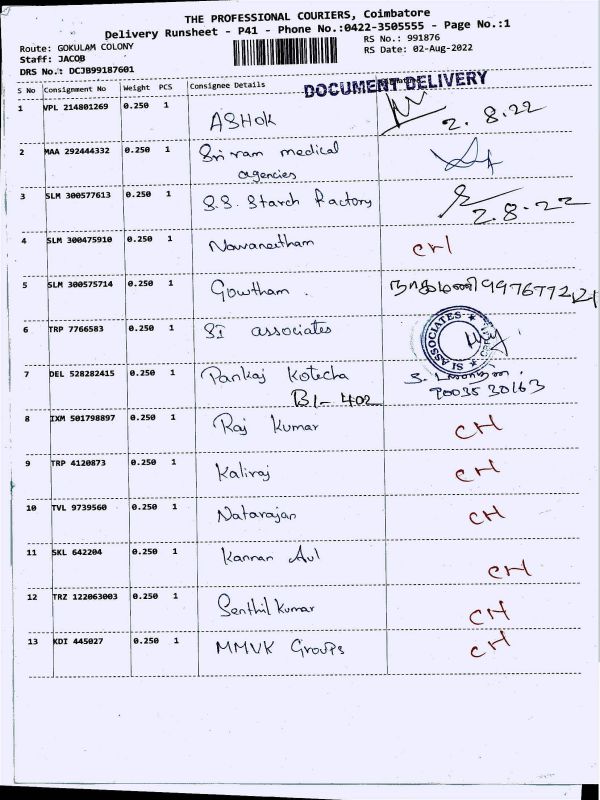 THE PROFESSIONAL COURIERS, Coimbatore
Delivery Runsheet - P41 - Phone No.:0422-3505555 - Page No.:1
Route: GOKULAM COLONY
RS No.: 991876
Staff: JACOB
RS Date: 02-Aug-2022
DRS No.: DCJB99187601
S No Consignment No Weight PCS Consignee Details
DOCUMENT DELIVERY
1 VPL 214801269 0.250 1 ASHOK 2.8.22
2 MAA 292444332 0.250 1 Sri ram medical
agencies
3 SLM 300577613 0.250 1 S.S. Starch Factory 2.8.22
4 SLM 300475910 0.250 1 Navaneetham
5 SLM 300575714 0.250 1 Gowtham . நாகமணி
6 TRP 7766583 0.250 1 SI associates SI ASSOCIATES
7 DEL 528282415 0.250 1 Pankaj Kotecha
B1-402 90035 30163
8 IXM 501798897 0.250 1 Raj Kumar CH
9 TRP 4120873 0.250 1 Kaliraj CH
10 TVL 9739560 0.250 1 Natarajan CH
11 SKL 642204 0.250 1 Kannan Aul CH
12 TRZ 122063003 0.250 1 Senthil Kumar CH
13 KDI 445027 0.250 1 MMVK Groups CH